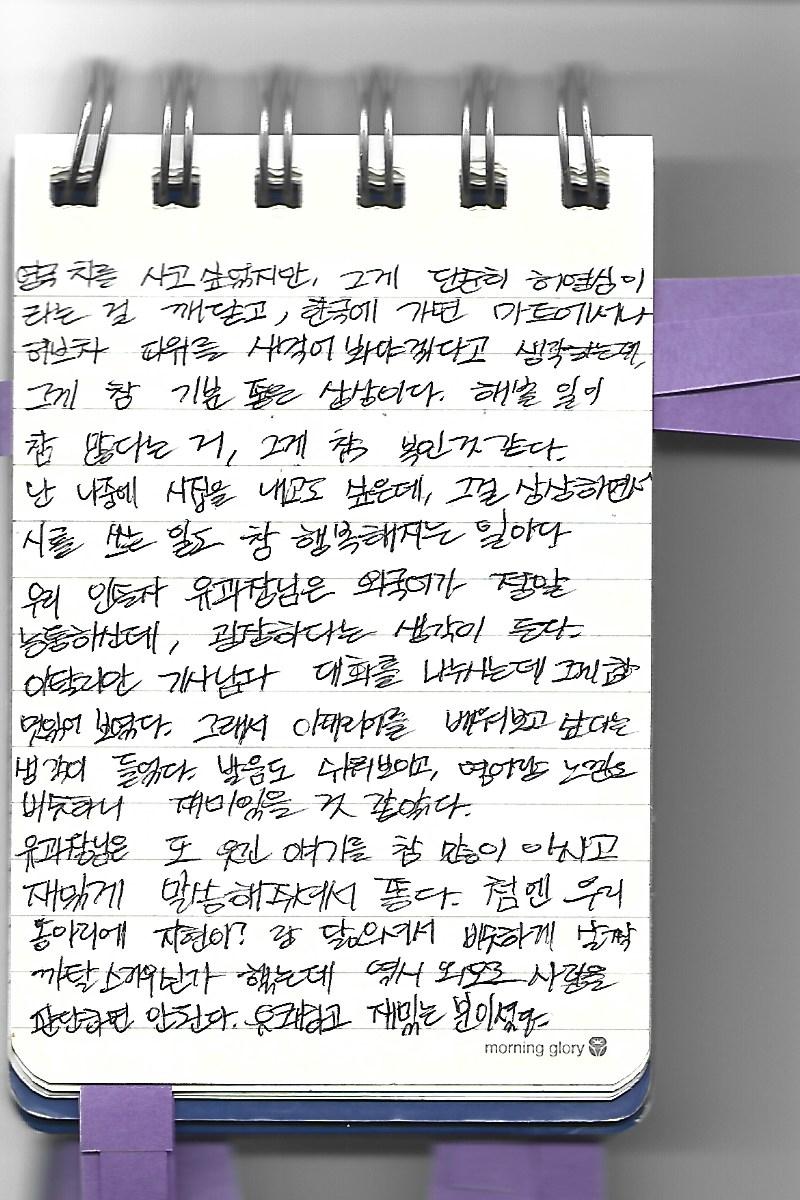 영국 차를 사고 싶었지만, 그게 단단히 허영심이
라는 걸 깨닫고, 한국에 가면 마트에서나
허브차 따위를 새겨봐야겠다고 생각하는데,
그게 참 기분 좋은 상상이다. 해볼 일이
참 많다는 거, 그게 참 복인것 같다.
난 나중에 시집을 내고도 싶은데, 그걸 상상하면서
시를 쓰는 일도 참 행복해지는 일이다
우리 인솔자 유과장님은 외국어가 정말
능통하신데, 굉장하다는 생각이 든다.
이탈리안 기사님과 대화를 나누시는데 그게 참
멋있어 보였다. 그래서 이태리어를 배워보고 싶다는
생각이 들었다. 발음도 쉬워보이고, 영어랑도
비슷하니 재미있을 것 같았다.
유과장님은 또 웃긴 얘기를 참 많이 아시고
재밌게 말씀해주셔서 좋다. 첨엔 우리
동아리에 지현이? 랑 닮으셔서 비슷하게 살짝
까탈스러우신가 했는데 역시 외모로 사람을
판단하면 안된다. 유쾌하고 재밌는 분이셨다.
morning glory